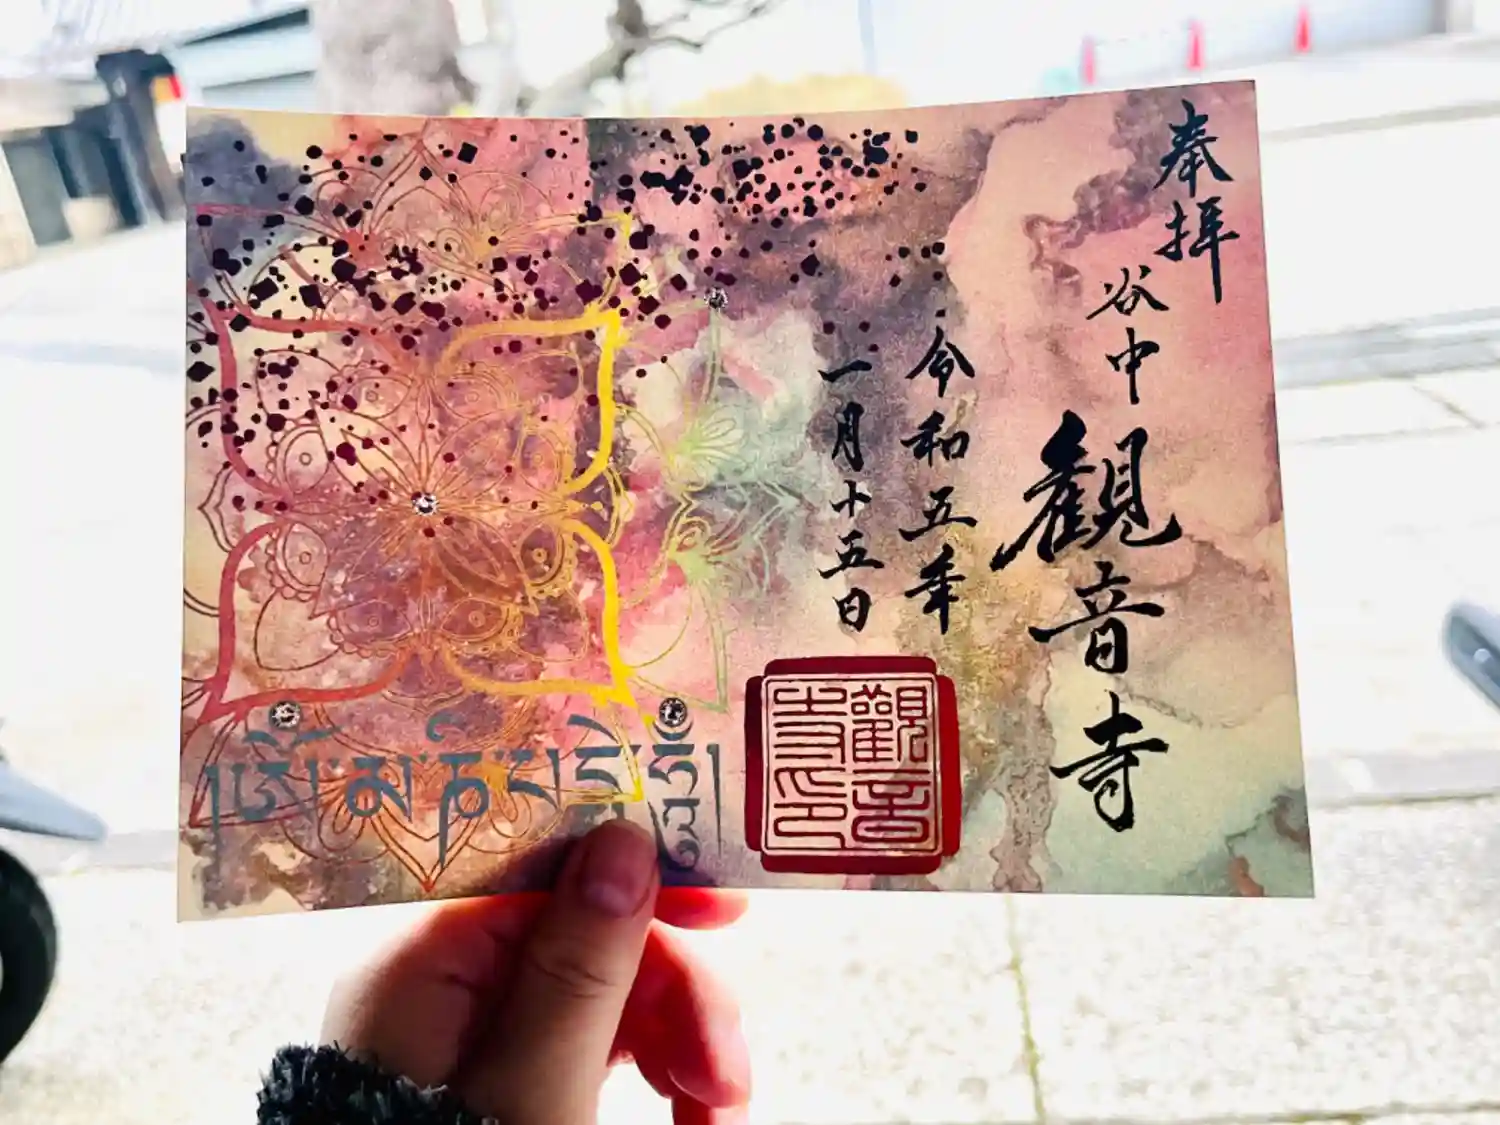 奉拝
谷中
觀音寺
令和五年
一月十五日
觀音
寺印
ༀ་མ་ཎི་པདྨེ་ཧཱུྃ